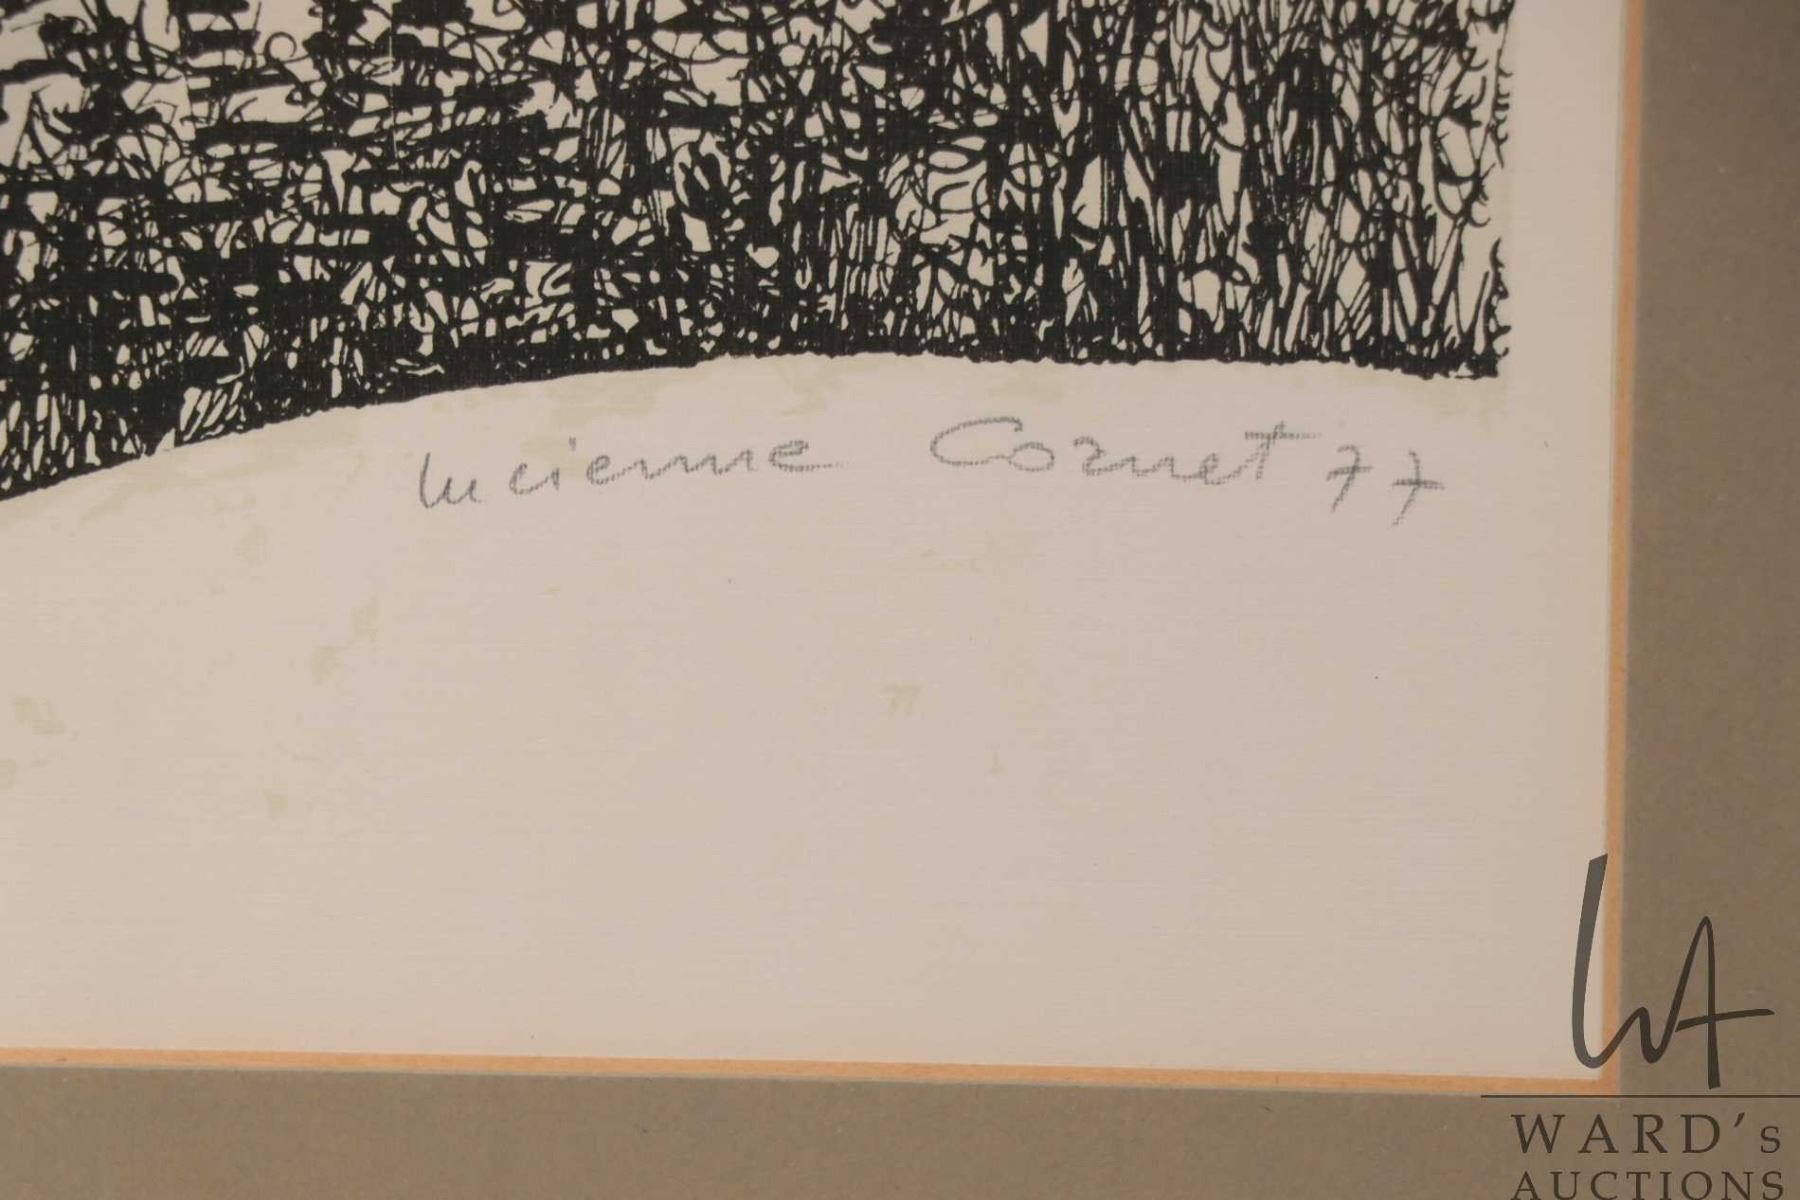 Lucienne Cornet 77
WA
WARD's
AUCTIONS